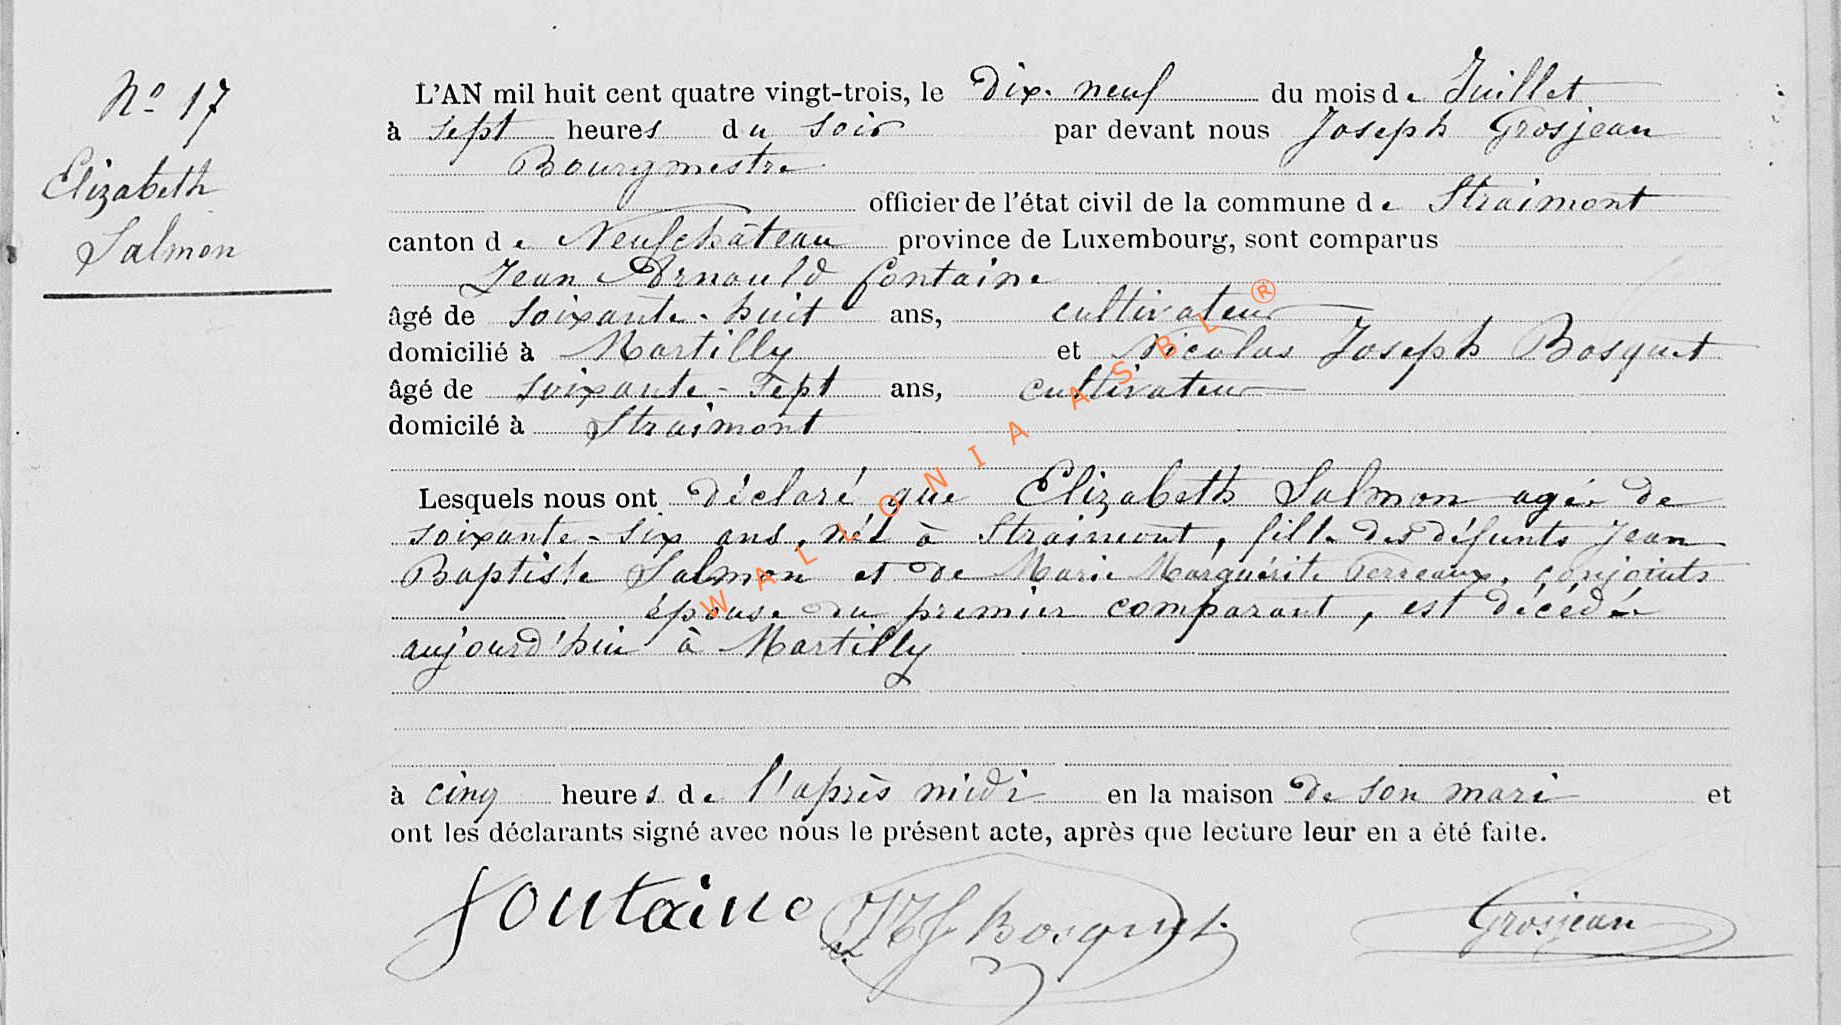 Nº 17
Elizabeth
Salmon
L'AN mil huit cent quatre vingt-trois, le Dix-neuf du mois de Juillet
à sept heures du soir par devant nous Joseph Grosjean
Bourgmestre
officier de l'état civil de la commune de Straimont
canton de Neufchâteau province de Luxembourg, sont comparus
Jean Arnould Fontaine
âgé de soixante-huit ans, cultivateur
domicilié à Martilly et Nicolas Joseph Bosquet
âgé de soixante-sept ans, cultivateur
domicilé à Straimont
Lesquels nous ont déclaré que Elizabeth Salmon agée de
soixante-six ans, née à Straimont, fille des défunts Jean
Baptiste Salmon et de Marie Marguérite Perreaux, conjoints
épouse du premier comparant, est décédée
aujourd'hui à Martilly
à cinq heures de l'après midi en la maison de son mari et
ont les déclarants signé avec nous le présent acte, après que lecture leur en a été faite.
Fontaine Bosquet Grosjean
WALLONIA ASBL ®